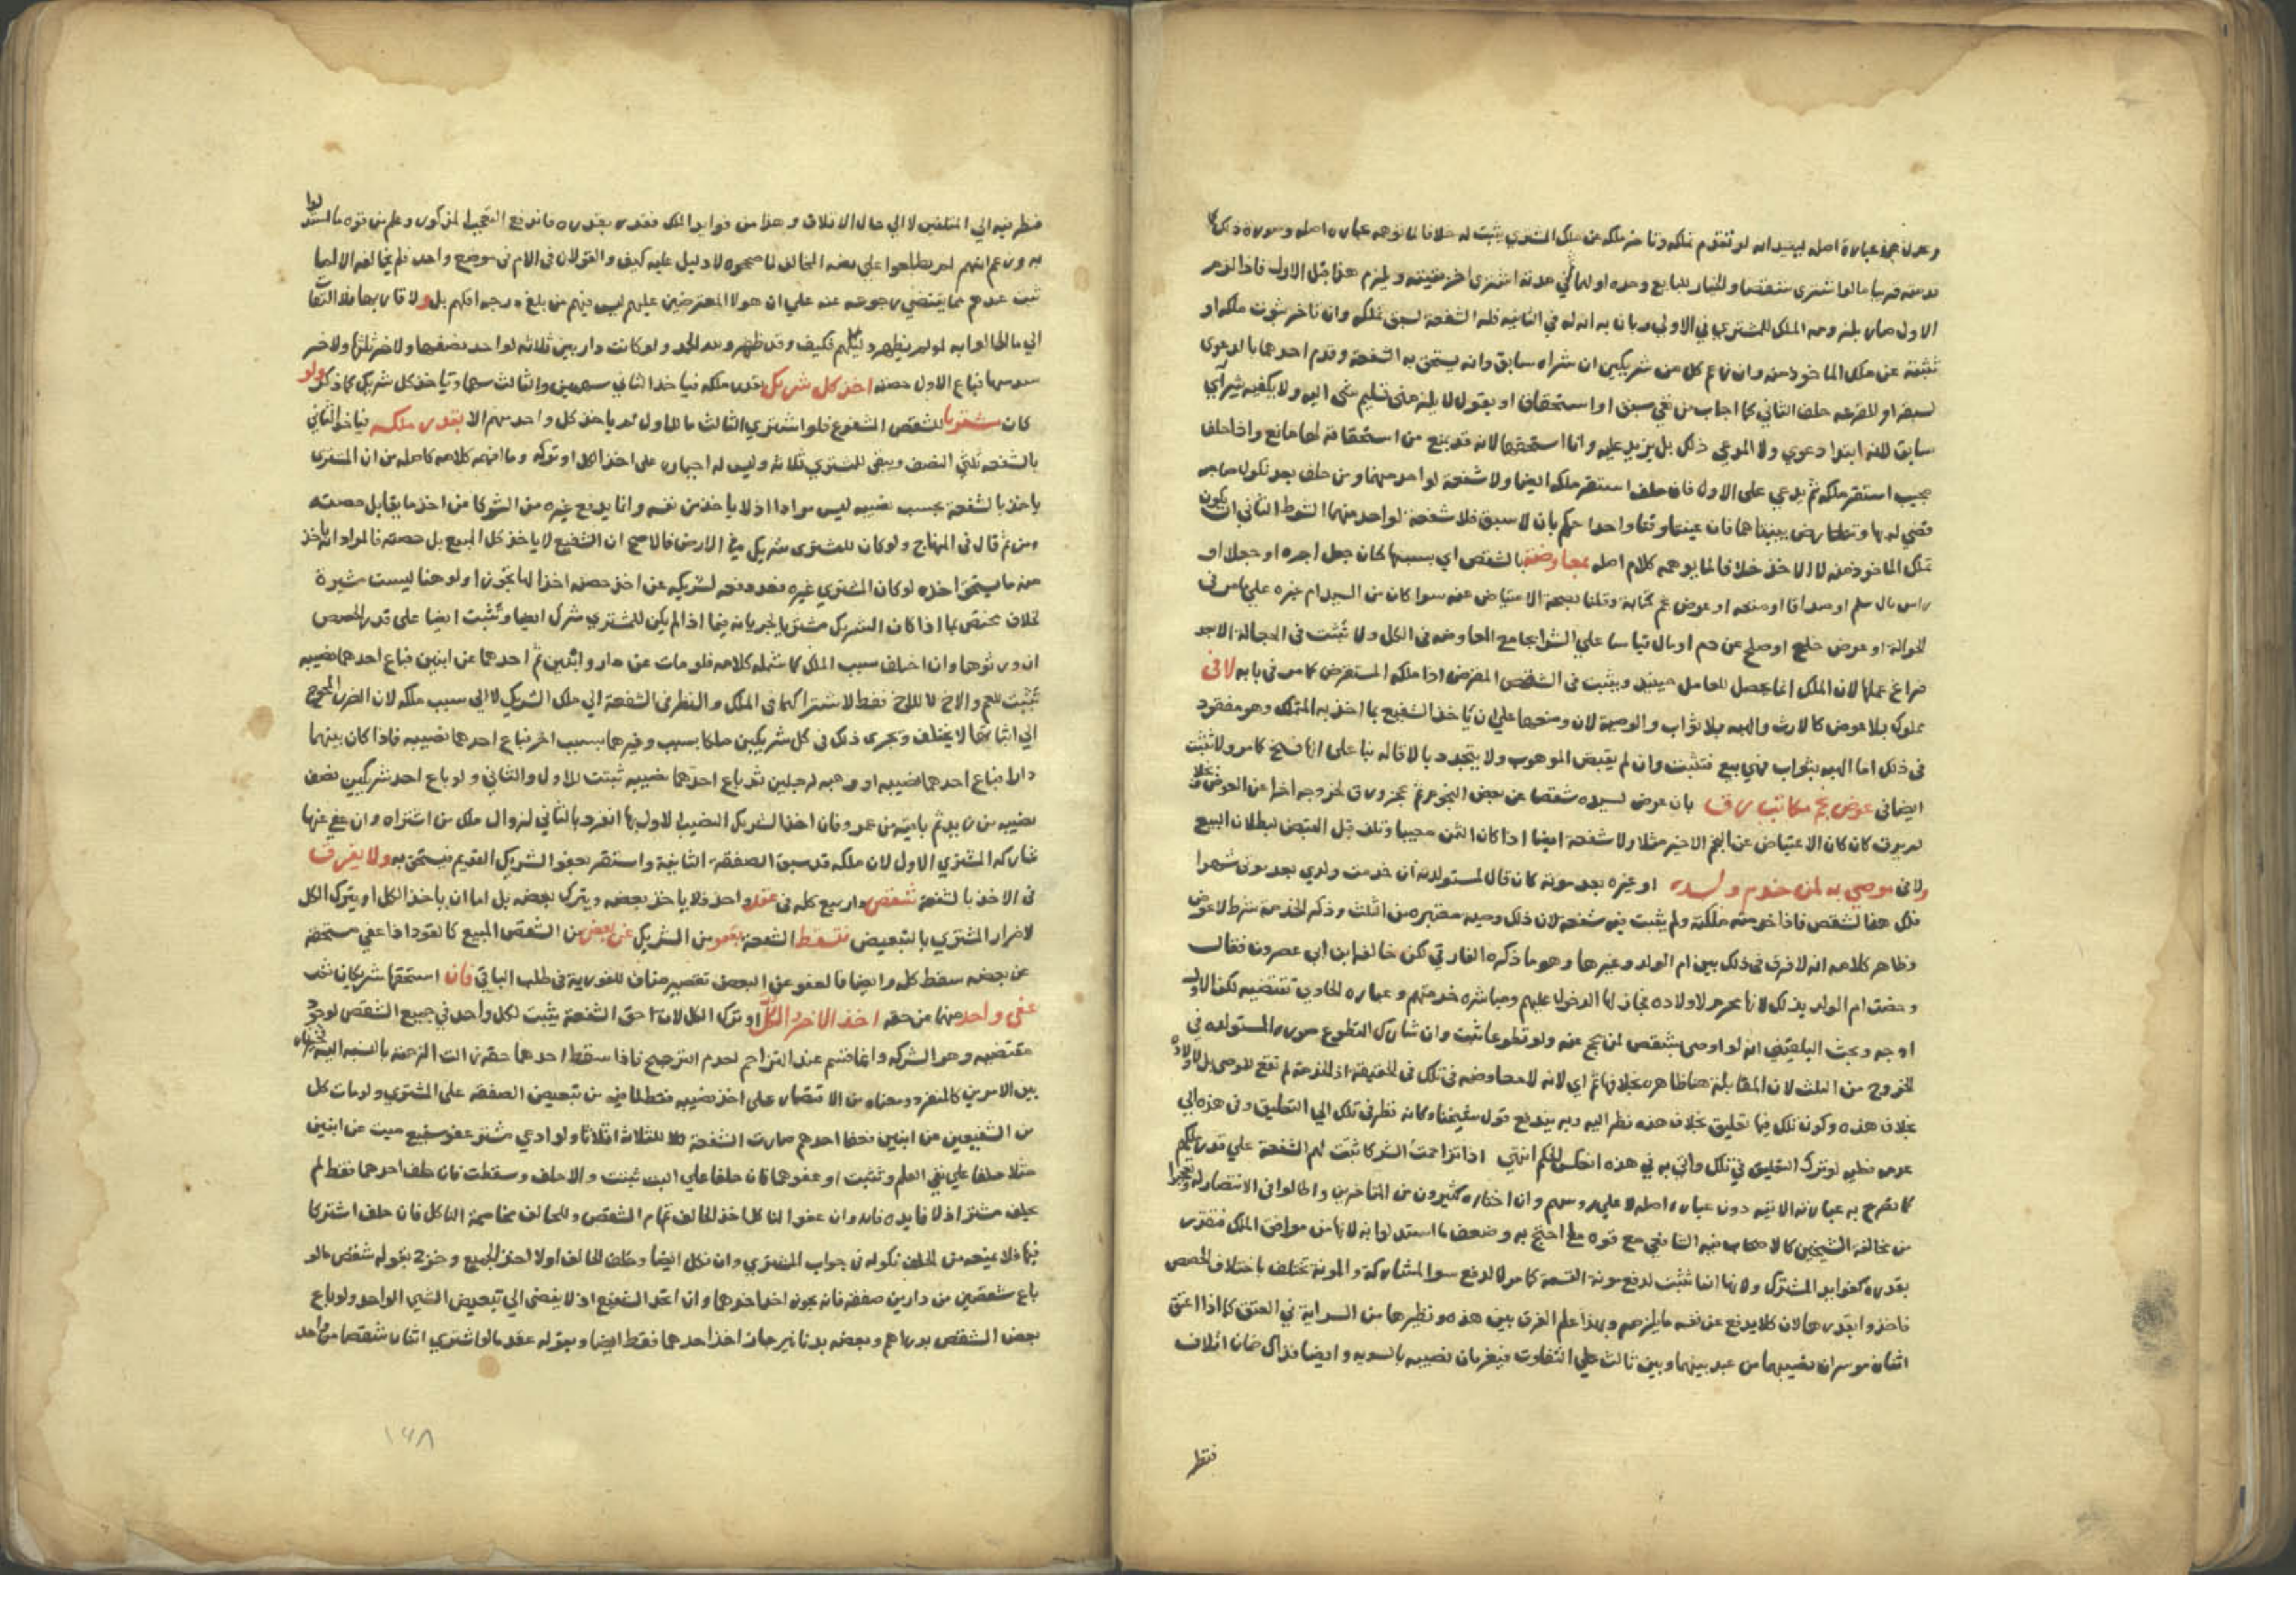 وعدل عن عبارة اصله ليفيد انه لو تقدم تملكه وتاخر ملكه عن ملك المشتري يثبت له خلافا لما توهمه عبارة اصله وصورة ذلك
الاول صار يلزمه الملك للمشتري في الاولى وبان به انه له في الثانية فله الشفعة لسبق تملكه وان تاخر ثبوت ملكه او
ثبتته عن ملك الماخوذ منه وان زعم كل من شريكين ان شراه سابق وانه يستحق به الشفعة وقدم احدهما بالدعوى
لسبقه او للقرعة حلف الثاني كما اجاب من نفي سبق او استحقاق او يقول لا يلزمني تسليم شي اليه ولا يكفيه شرآي
سابق لانه ابتدا دعوي ولا المدعي ذلك بل يزيد عليه وانا استحقها لانه قد يمنع من استحقاقه لها مانع واذا حلف
مجيب استقر ملكه ثم يدعي على الاول فان حلف استقر ملكه ايضا ولا شفعة لواحد منهما ومن حلف بعد نكول صاحبه
قضي له بها وتعارض بينتاهما فان عينتا وقتا واحدا حكم بان لا سبق فلا شفعة لواحد منهما الشرط الثاني ان يكون
تملك الماخوذ منه لا الاخذ خلافا لما يوهمه كلام اصله بمعاوضة بالشقص اي بسببها كان جعل اجرة او جعلا او
راس مال سلم او صداقا او متعة او عوض نجم كتابة وقلنا بصحة الاعتياض عنه سوا كان من السيد ام غيره على ما مر في
الحوالة او عوض خلع او صلح عن دم او مال قياسا علي الشرا بجامع المعاوضة في الكل ولا تثبت في الجعالة الا بعد
فراغ عملها لان الملك انما يحصل للعامل حينئذ ويثبت في الشقص المقرض اذا ملكه المستقرض كما مر في بابه لا في
مملوك بلا عوض كالارث والهبة بلا ثواب والوصية لان وضعها علي ان ياخذ الشفيع بما اخذ به المتملك وهو مفقود
في ذلك اما الهبة بثواب فهي بيع فتثبت وان لم يقبض الموهوب ولا يتجدد بالاقالة بنا على انها فسخ كما مر ولا تثبت
ايضا في عوض نجم مكاتب رق بان عوض لسيده شقصا عن بعض النجوم ثم عجز ورق لخروجه اخرا عن العوض بخلاف
لم يرق كان كان الاعتياض عن النجم الاخير مثلا ولا شفعة ايضا اذا كان الثمن معيبا وتلف قبل القبض لبطلان البيع
ولا في موصي به لمن خدم ولده او غيره بعد موته كان قال لمستولدته ان خدمت ولدي بعد موتي شهرا
فلك هذا الشقص فاذا خدمته ملكته ولم يثبت فيه شفعة لان ذلك وصية معتبرة من الثلث وذكر الخدمة شرط لا عوض
وظاهر كلامه انه لا فرق في ذلك بين ام الولد وغيرها وهو ما ذكره الفارقي لكن خالفه ابن ابي عصرون فقال
وخصت ام الولد بذلك لانها محرم لاولاده فجاز لها الدخول عليهم ومباشرة خدمتهم وعبارة الحاوي تقتضيه لكن الاول
اوجه وبحث البلقيني انه لو اوصى بشقص لمن يحج عنه ولو تطوعا ثبت وان شارك التطوع صورة المستولدة في
الخروج من الثلث لان المقابلة هنا ظاهرة بخلافها ثم اي لانه لا معاوضة في تلك في الحقيقة اذ الخدمة لم تقع للموصي بل لاولاده
بخلاف هذه وكون تلك فيها تعليق بخلاف هذه نظر اليه وبه يندفع قول شيخنا وكانه نظر في تلك الي التعليق وفي هذه الي
عوض فعليه لو ترك التعليق في تلك واتي به في هذه انعكس الحكم انتهي اذا تزاحمت الشركا ثبت لهم الشفعة علي قدر ملكهم
كما تصرح به عبارته الاتية دون عبارة اصله لا علي روسهم وان اختاره كثيرون من المتاخرين واطالوا في الانتصار له وتعجبوا
من مخالفة الشيخين كالاصحاب فيه الشافعي مع قوة ما احتج به وضعف ما استدلوا به لانها من مرافق الملك فتقدر
بقدره كفوايد المشترك ولانها انما تثبت لدفع مونة القسمة كما مر لا لدفع سوا المشاركة والمونة تختلف باختلاف الحصص
فاخذوا بقدرها لان كلا يدفع عن نفسه ما يلزمه وبهذا علم الفرق بين هذه ونظيرها من السراية في العتق كما اذا اعتق
اثنان موسران نصيبهما من عبد بينهما وبين ثالث علي التفاوت فيغرمان نصيبه بالسوية وايضا فذاك ضمان اتلاف
فنظر
فنظر فيه الي المتلفين لا الي حال الاتلاف وهذا من فوايد الملك فقدر بقدره فاندفع التعجب المذكور وعلم من قوة ما استدلوا
به وزعم انهم لم يطلعوا علي نصه المخالف لما صححوه لا دليل عليه كيف والقولان في الام في موضع واحد فلم يخالفه الا لما
ثبت عندهم مما يقتضي رجوعه عنه علي ان هولا المعترضين عليهم ليس فيهم من بلغ درجة اقلهم بل ولا قاربها فلا التفات
الي ما اطالوا به لو لم يظهر دليلهم فكيف وقد ظهر ولله الحمد ولو كانت دار بين ثلاثة لواحد نصفها ولاخر ثلثها ولاخر
سدسها فباع الاول حصته اخذ كل شريك بقدر ملكه فياخذ الثاني سهمين والثالث سهما وياخذ كل شريك كما ذكر ولو
كان مشتريا للشقص المشفوع فلو اشتري الثالث ما للاول لم ياخذ كل واحد منهم الا بقدر ملكه فياخذ الثاني
بالشفعة ثلثي النصف ويبقي للمشتري ثلاثة وليس له اجباره على اخذ الكل او تركه وما افهمه كلامه كاصله من ان المشتري
ياخذ بالشفعة بحسب نصيبه ليس مرادا اذ لا ياخذ من نفسه وانما يدفع غيره من الشركا من اخذ ما يقابل حصته
ومن ثم قال في المنهاج ولو كان للمشتري شريك في الارض فالاصح ان الشفيع لا ياخذ كل المبيع بل حصته فالمراد انه ياخذ
منه ما يستحق اخذه لو كان المشتري غيره فعد دفعه لشريكه عن اخذ حصته اخذا لها تجوزا ولو هنا ليست مشيرة
لخلاف مختص بما اذا كان الشريك مشتريا لجريانه فيما اذا لم يكن للمشتري شرك ايضا وتثبت ايضا على قدر الحصص
ان ورثوها وان اختلف سبب الملك كما شمله كلامه فلو مات عن دار وابنين ثم احدهما عن ابنين فباع احدهما نصيبه
تثبت للعم والاخ لا للاخ فقط لاشتراكهما في الملك والنظر في الشفعة الي ملك الشريك لا الي سبب ملكه لان الضرر المحوج
الي اثباتها لا يختلف ويجري ذلك في كل شريكين ملكا بسبب وغيرهما بسبب اخر فباع احدهما نصيبه فاذا كان بينهما
دار فباع احدهما نصيبه او وهبه لرجلين ثم باع احدهما نصيبه ثبتت للاول والثاني ولو باع احد شريكين نصف
نصيبه من زيد ثم باقيه من عمرو فان اخذ الشريك النصيب الاول بها انفرد بالثاني لزوال ملك من اشتراه وان عفي عنها
شاركه المشتري الاول لان ملكه قد سبق الصفقة الثانية واستقر بعفو الشريك القديم فيستحق به ولا يفرق
في الاخذ بالشفعة شقص دار بيع كله في عقد واحد فلا ياخذ بعضه ويترك بعضه بل اما ان ياخذ الكل او يترك الكل
لاضرار المشتري بالتبعيض فتسقط الشفعة بعفو من الشريك عن بعض من الشقص المبيع كالقود اذا عفي مستحقه
عن بعضه سقط كله وايضا فالعفو عن البعض تقصير مناف للفورية في طلب الباقي فان استحقها شريكان ثم
عفى واحد منهما من حقه اخذ الاخر الكل او ترك الكل لان احق الشفعة يثبت لكل واحد في جميع الشقص لوجود
مقتضيه وهو الشركة وانما تنقسم عند التزاحم لعدم الترجيح فاذا سقط احدهما حقه زالت الزحمة بالنسبة اليه فتخير
بين الامرين كالمنفرد ومنعناه من الاقتصار على اخذ نصيبه فقط لما فيه من تبعيض الصفقة على المشتري ولو مات كل
من الشفيعين عن ابنين فعفا احدهم صارت الشفعة للثلاثة اثلاثا ولو ادعي مشتر عفو شفيع ميت عن ابنين
مثلا حلفا علي نفي العلم وتثبت او عفوهما فان حلفا علي البت ثبتت والا حلف وسقطت فان حلف احدهما فقط لم
يحلف مشتر اذ لا فايدة فانه وان عفوا الناكل اخذ الحالف تمام الشقص وللحالف مخاصمة الناكل فان حلف اشتركا
فيها فلا يمنعه من الحلف نكوله في جواب المشتري وان نكل ايضا وحلف الحالف اولا اخذ الجميع وخرج بقوله شقص ما لو
باع شقصين من دارين صفقة فانه يجوز اخذ احدهما وان اتحد الشفيع اذ لا يفضي الي تبعيض الشي الواحد ولو باع
بعض الشقص بدراهم وبعضه بدنانير جاز اخذ احدهما فقط ايضا وبقوله عقد ما لو اشتري اثنان شقصا من واحد
١٤٨